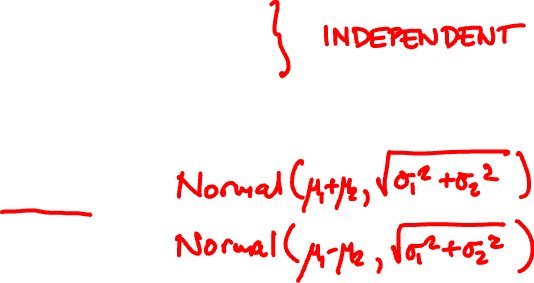 } INDEPENDENT
Normal(μ₁+μ₂, √σ₁²+σ₂²)
Normal(μ₁-μ₂, √σ₁²+σ₂²)